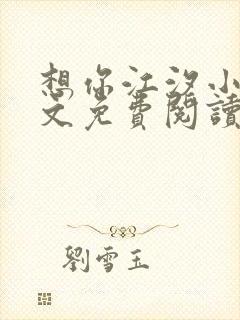 想你江汐小
文免費閱讀
劉雪玉